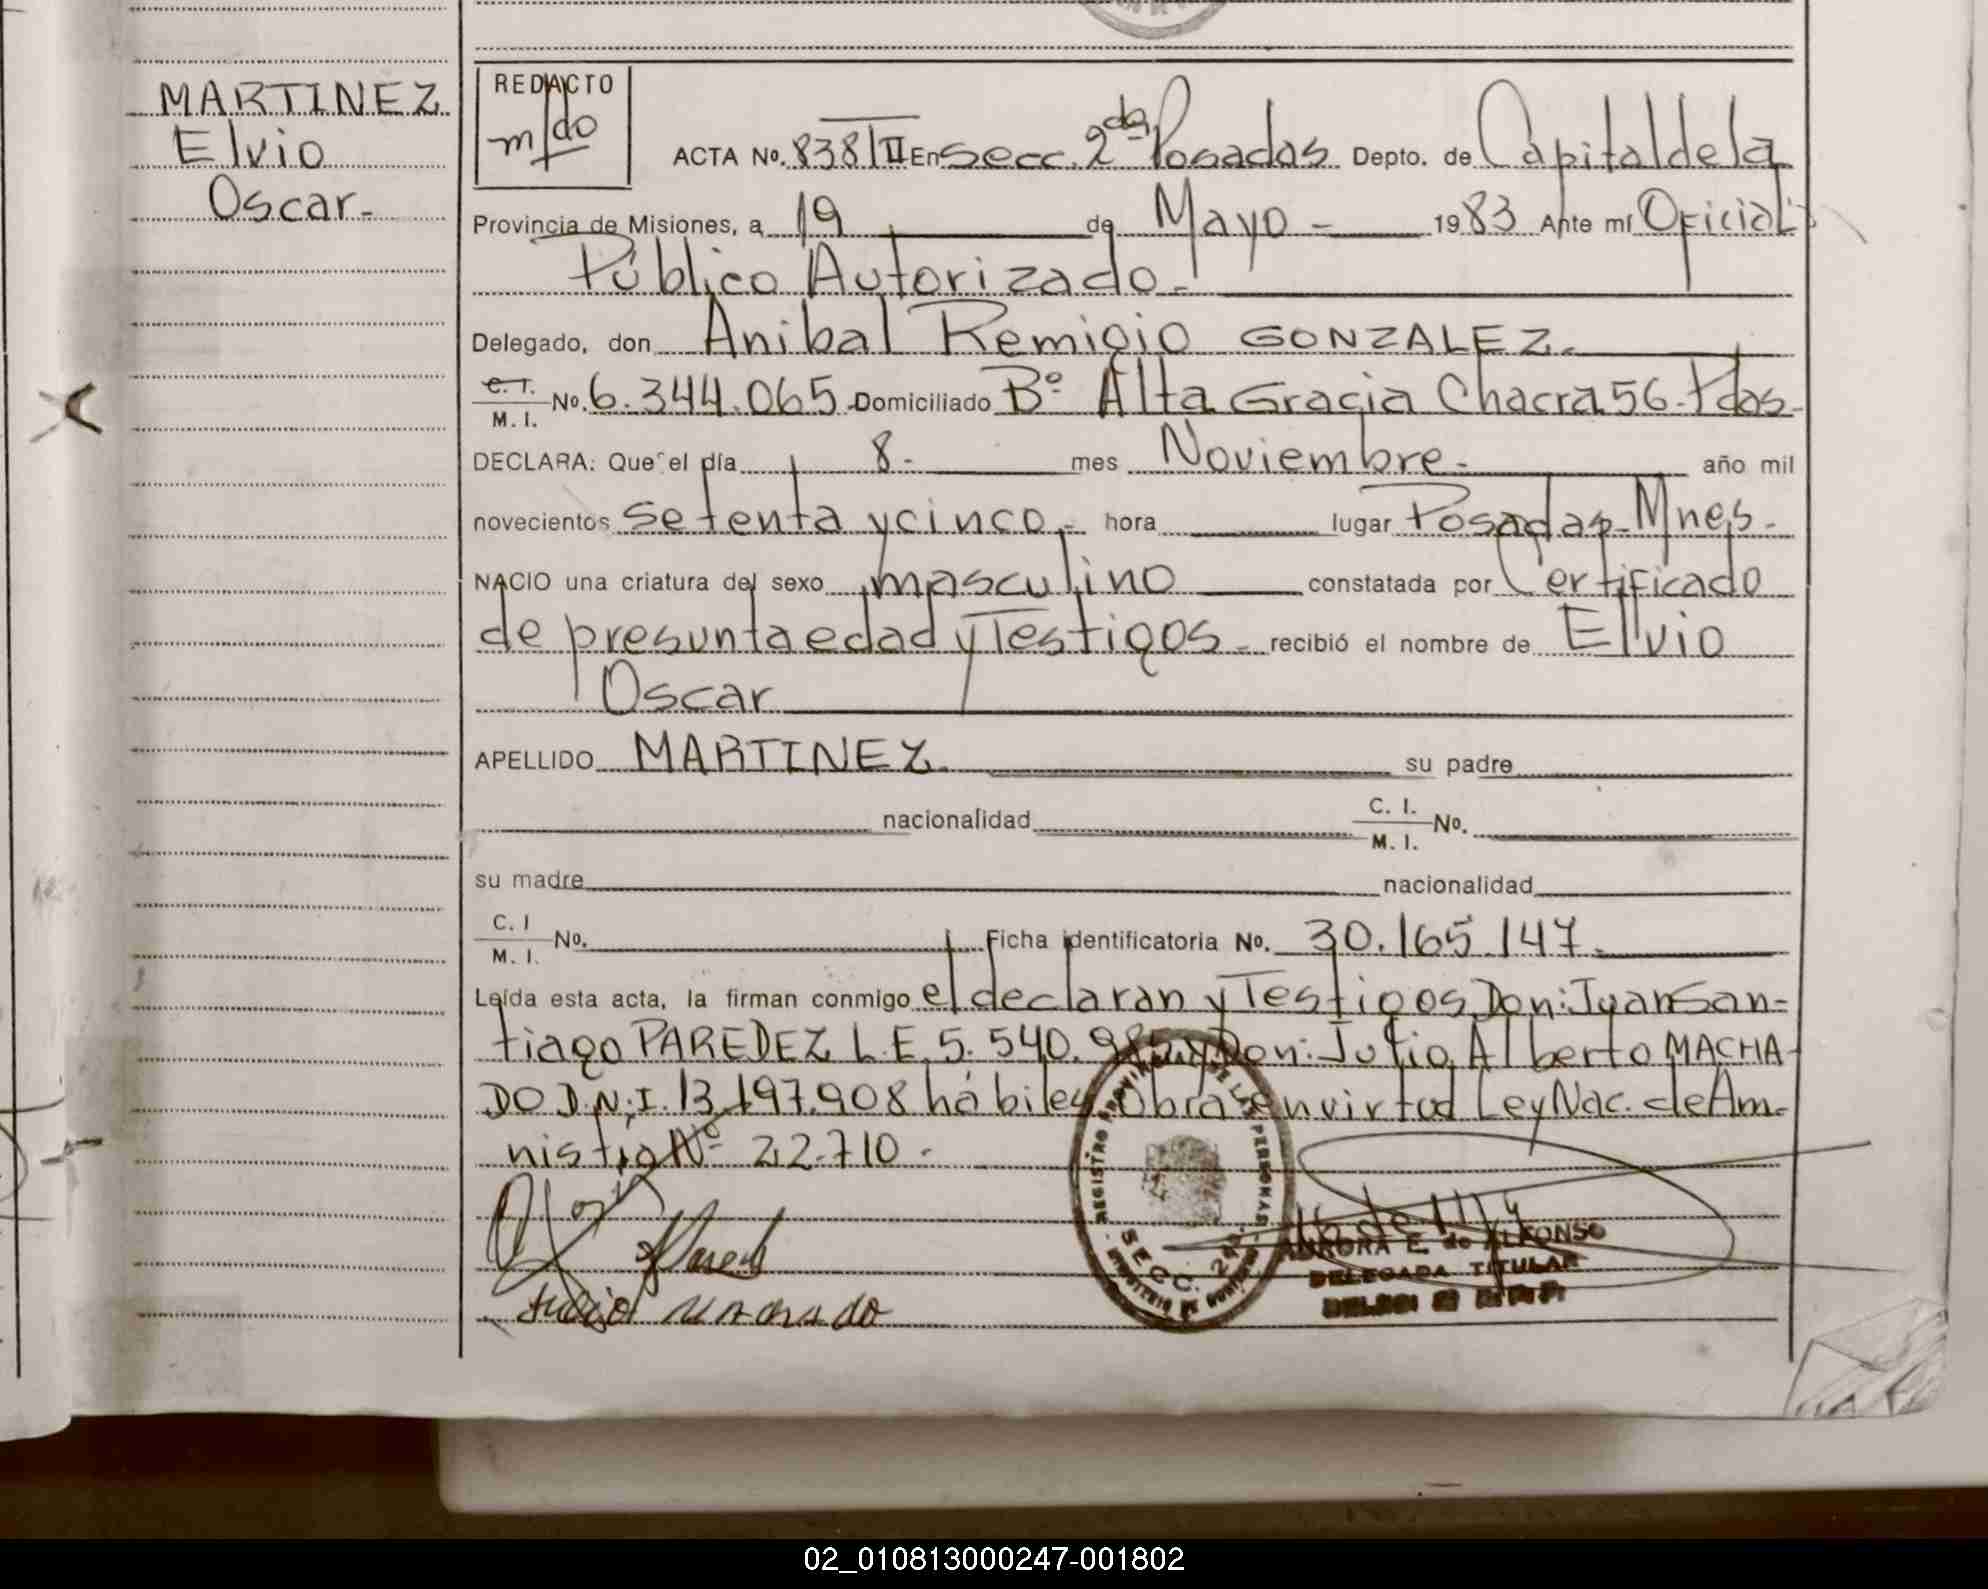 MARTINEZ
Elvio
Oscar.-
REDACTO
m/do
ACTA No. 838/II En Secc. 2da Posadas Depto. de Capital de la
Provincia de Misiones, a 19 de Mayo - 1983 Ante mí Oficial
Público Autorizado.-
Delegado, don Anibal Remigio GONZALEZ.
C. I.
M. I. No. 6.344.065 Domiciliado Bº Alta Gracia Chacra 56-Pdas-
DECLARA: Que el día 8- mes Noviembre- año mil
novecientos setenta y cinco.- hora lugar Posadas-Mnes-
NACIO una criatura del sexo masculino constatada por Certificado
de presunta edad y Testigos- recibió el nombre de Elvio
Oscar
APELLIDO MARTINEZ. su padre
nacionalidad C. I.
M. I. No.
su madre nacionalidad
C. I
M. I. No. Ficha identificatoria No. 30.165.147.
Leída esta acta, la firman conmigo el declaran y Testigos Don: Juan San=
tiago PAREDEZ L.E. 5.540.985 y Don: Julio Alberto MACHA-
DO D.N.I. 13.197.908 hábiles Obra en virtud Ley Nac. de Am-
nistia Nº 22.710-
Julio Machado
REGISTRO PROVINCIAL DE LAS PERSONAS
SECC. 2da
MINISTERIO DE GOBIERNO
AURORA E. de ALFONSO
DELEGADA TITULAR
02_010813000247-001802